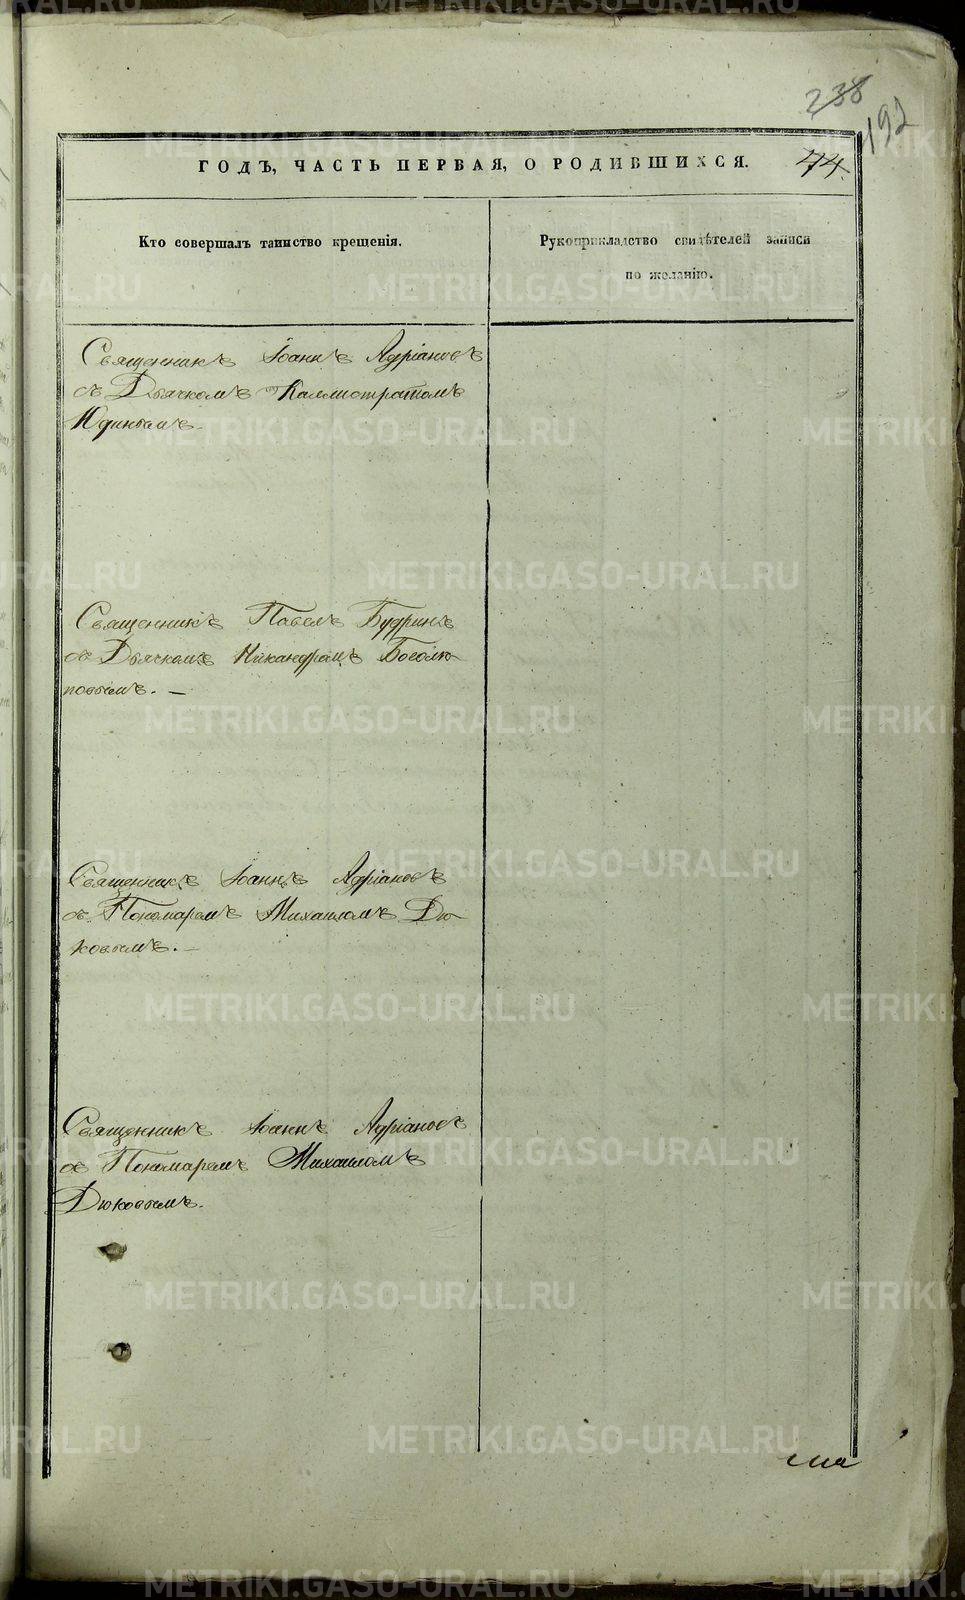 238
192
ГОДЪ, ЧАСТЬ ПЕРВАЯ, О РОДИВШИХСЯ. 44.
Кто совершалъ таинство крещенія.
Рукоприкладство свидѣтелей записи
по желанію.
Священникъ Іоаннъ Адріановъ
съ Дьячкомъ Каллистратомъ
Юдинымъ.
Священникъ Павелъ Будринъ
съ Дьячкомъ Никандромъ Боголю-
повымъ. —
Священникъ Іоаннъ Адріановъ
съ Пономаремъ Михаиломъ Дю-
ковымъ. —
Священникъ Іоаннъ Адріановъ
съ Пономаремъ Михаиломъ
Дюковымъ.
METRIKI.GASO-URAL.RU